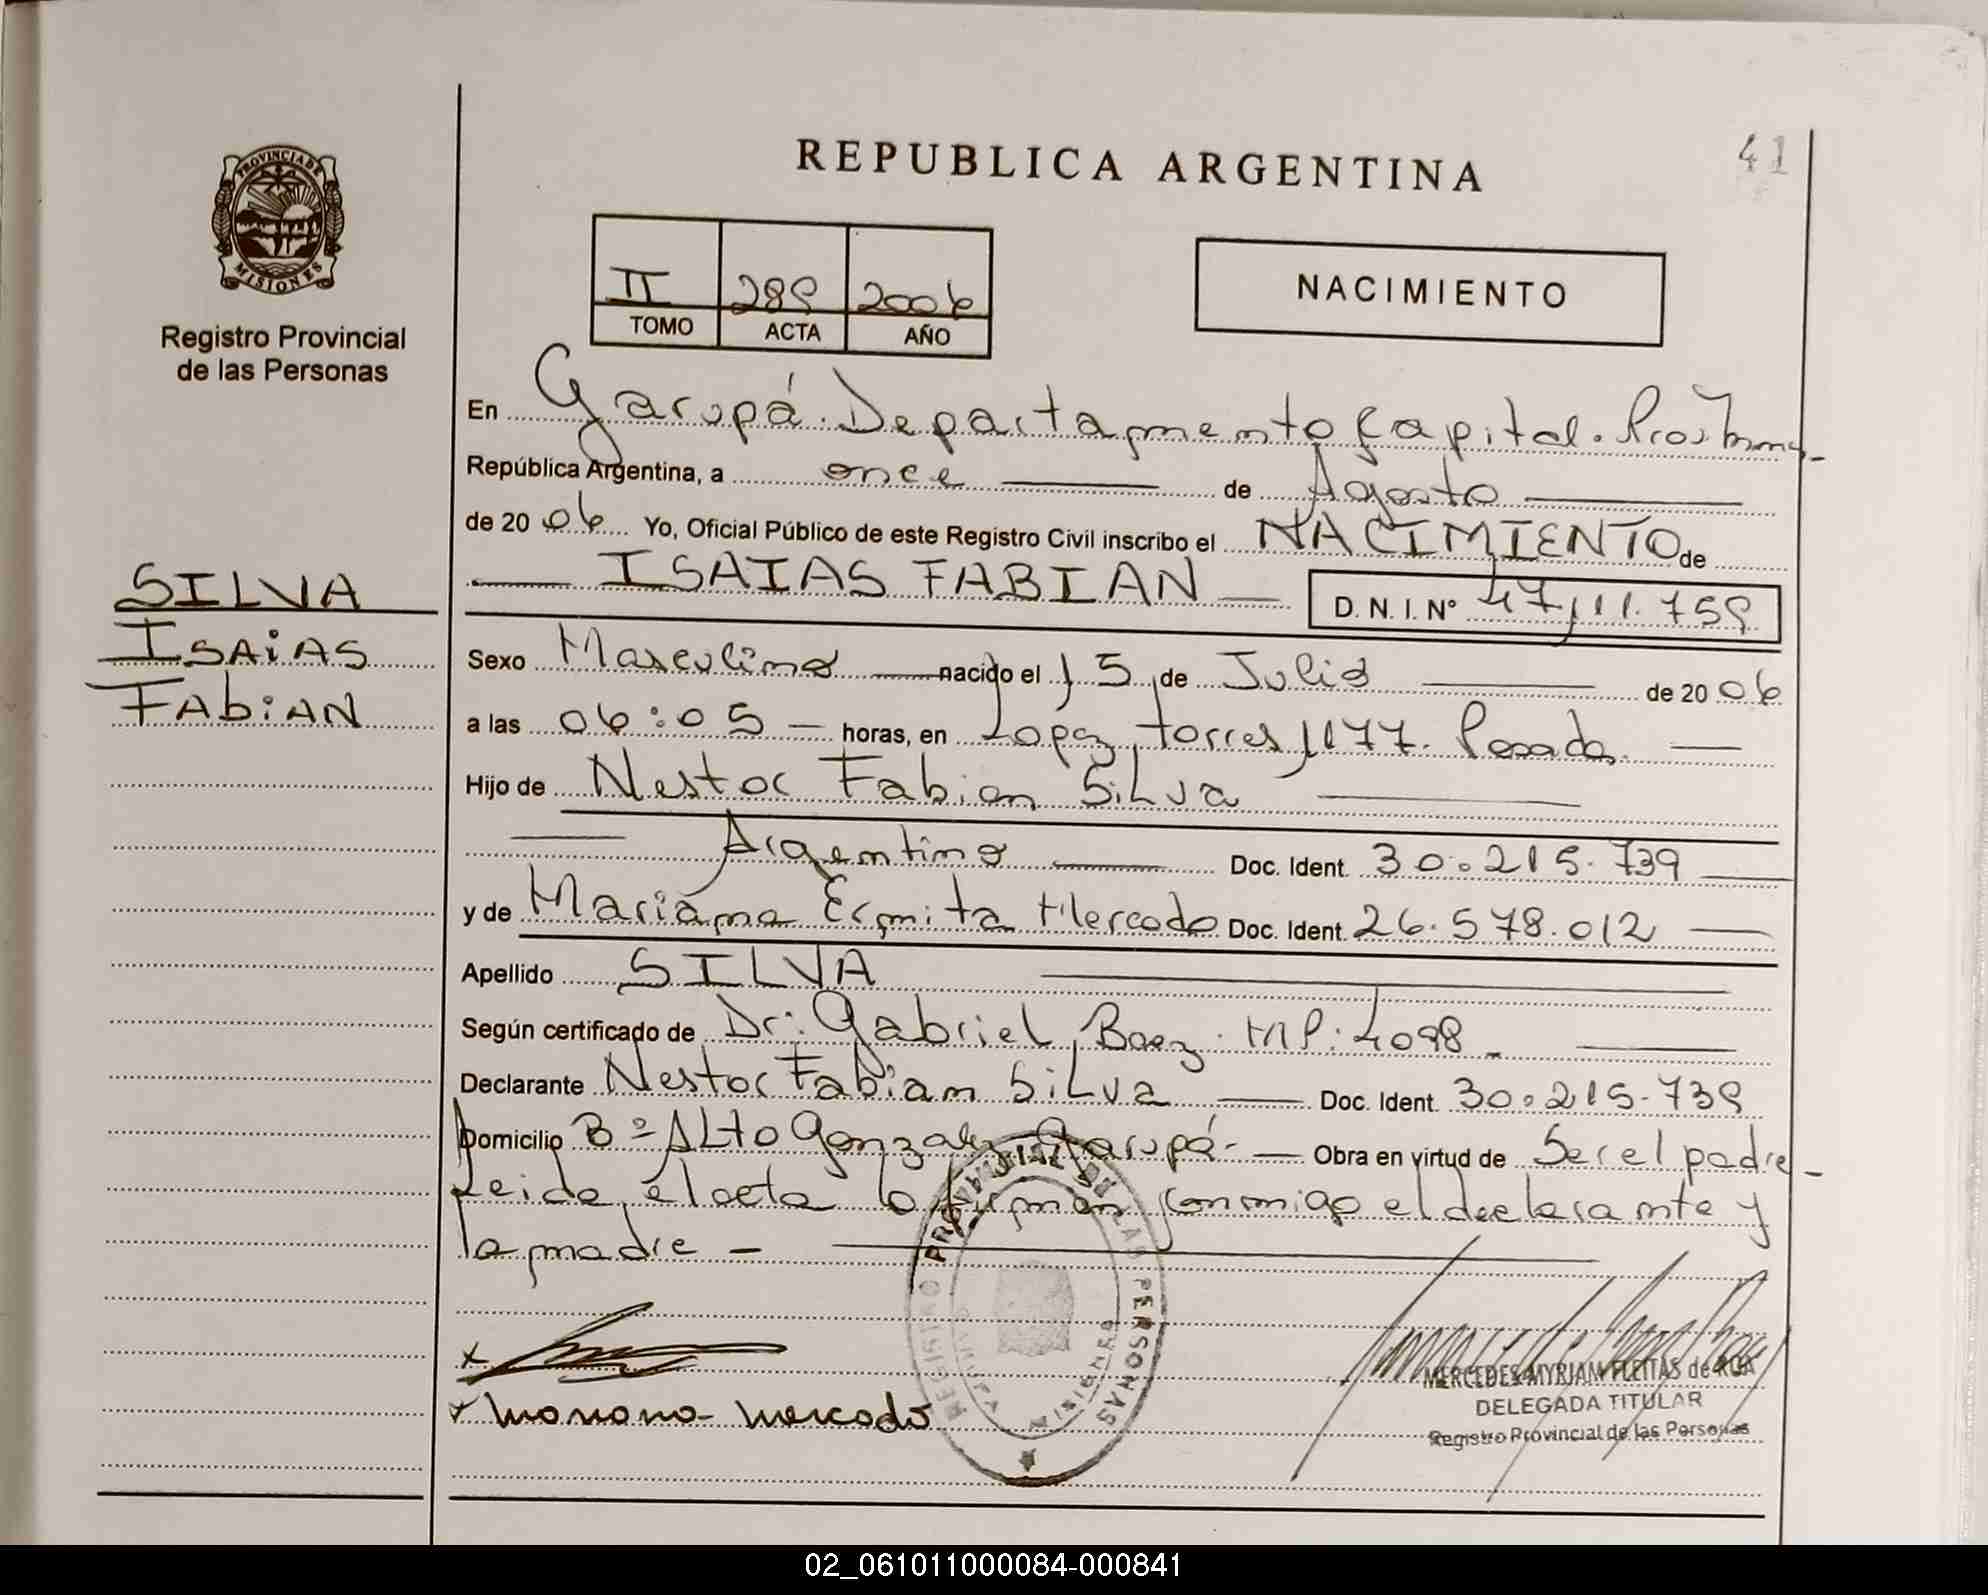 41
REPUBLICA ARGENTINA
PROVINCIA DE
MISIONES
Registro Provincial
de las Personas
II 289 2006
TOMO ACTA AÑO
NACIMIENTO
En Garupá. Departamento Capital.
República Argentina, a once de Agosto
de 2006 Yo, Oficial Público de este Registro Civil inscribo el NACIMIENTO de
ISAIAS FABIAN D.N.I. Nº 47.111.759
SILVA
ISAiAS
FAbiAN
Sexo Masculino nacido el 15 de Julio de 2006
a las 06:05 horas, en Lopez Torres 1177. Posadas.
Hijo de Nestor Fabian Silva
Argentino Doc. Ident. 30.215.739
y de Mariana Ermita Mercado Doc. Ident. 26.578.012
Apellido SILVA
Según certificado de Dr: Gabriel Baez. MP: 4098
Declarante Nestor Fabian Silva Doc. Ident. 30.215.739
Domicilio Bº Alto Gonzalez Garupá - Obra en virtud de Ser el padre -
Leida el acta lo firman conmigo el declarante y
la madre -
x
x Mariana Mercado
REGISTRO PROVINCIAL DE LAS PERSONAS
MISIONES
MERCEDES MYRIAM FLEITAS de ROA
DELEGADA TITULAR
Registro Provincial de las Personas
02_061011000084-000841